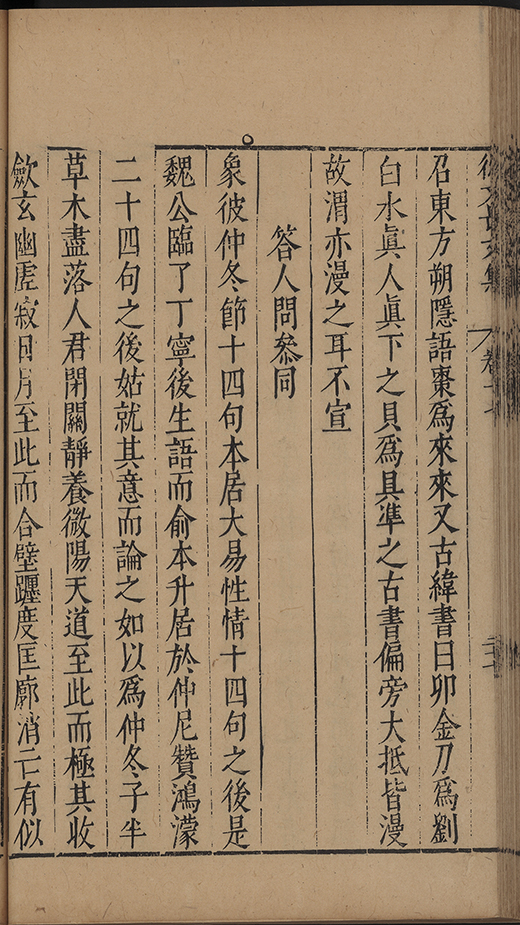 召東方朔隱語棗爲來來又古緯書曰卯金刀爲劉
白水眞人眞下之貝爲具準之古書偏旁大抵皆漫
故渭亦漫之耳不宣
答人問叅同
象彼仲冬節十四句本居大易性情十四句之後是
魏公臨了丁寧後生語而俞本升居於仲尼贊鴻濛
二十四句之後姑就其意而論之如以爲仲冬子半
草木盡落人君閉關靜養微陽天道至此而極其收
歛玄幽虗寂日月至此而合璧躔度匡廓消亡有似